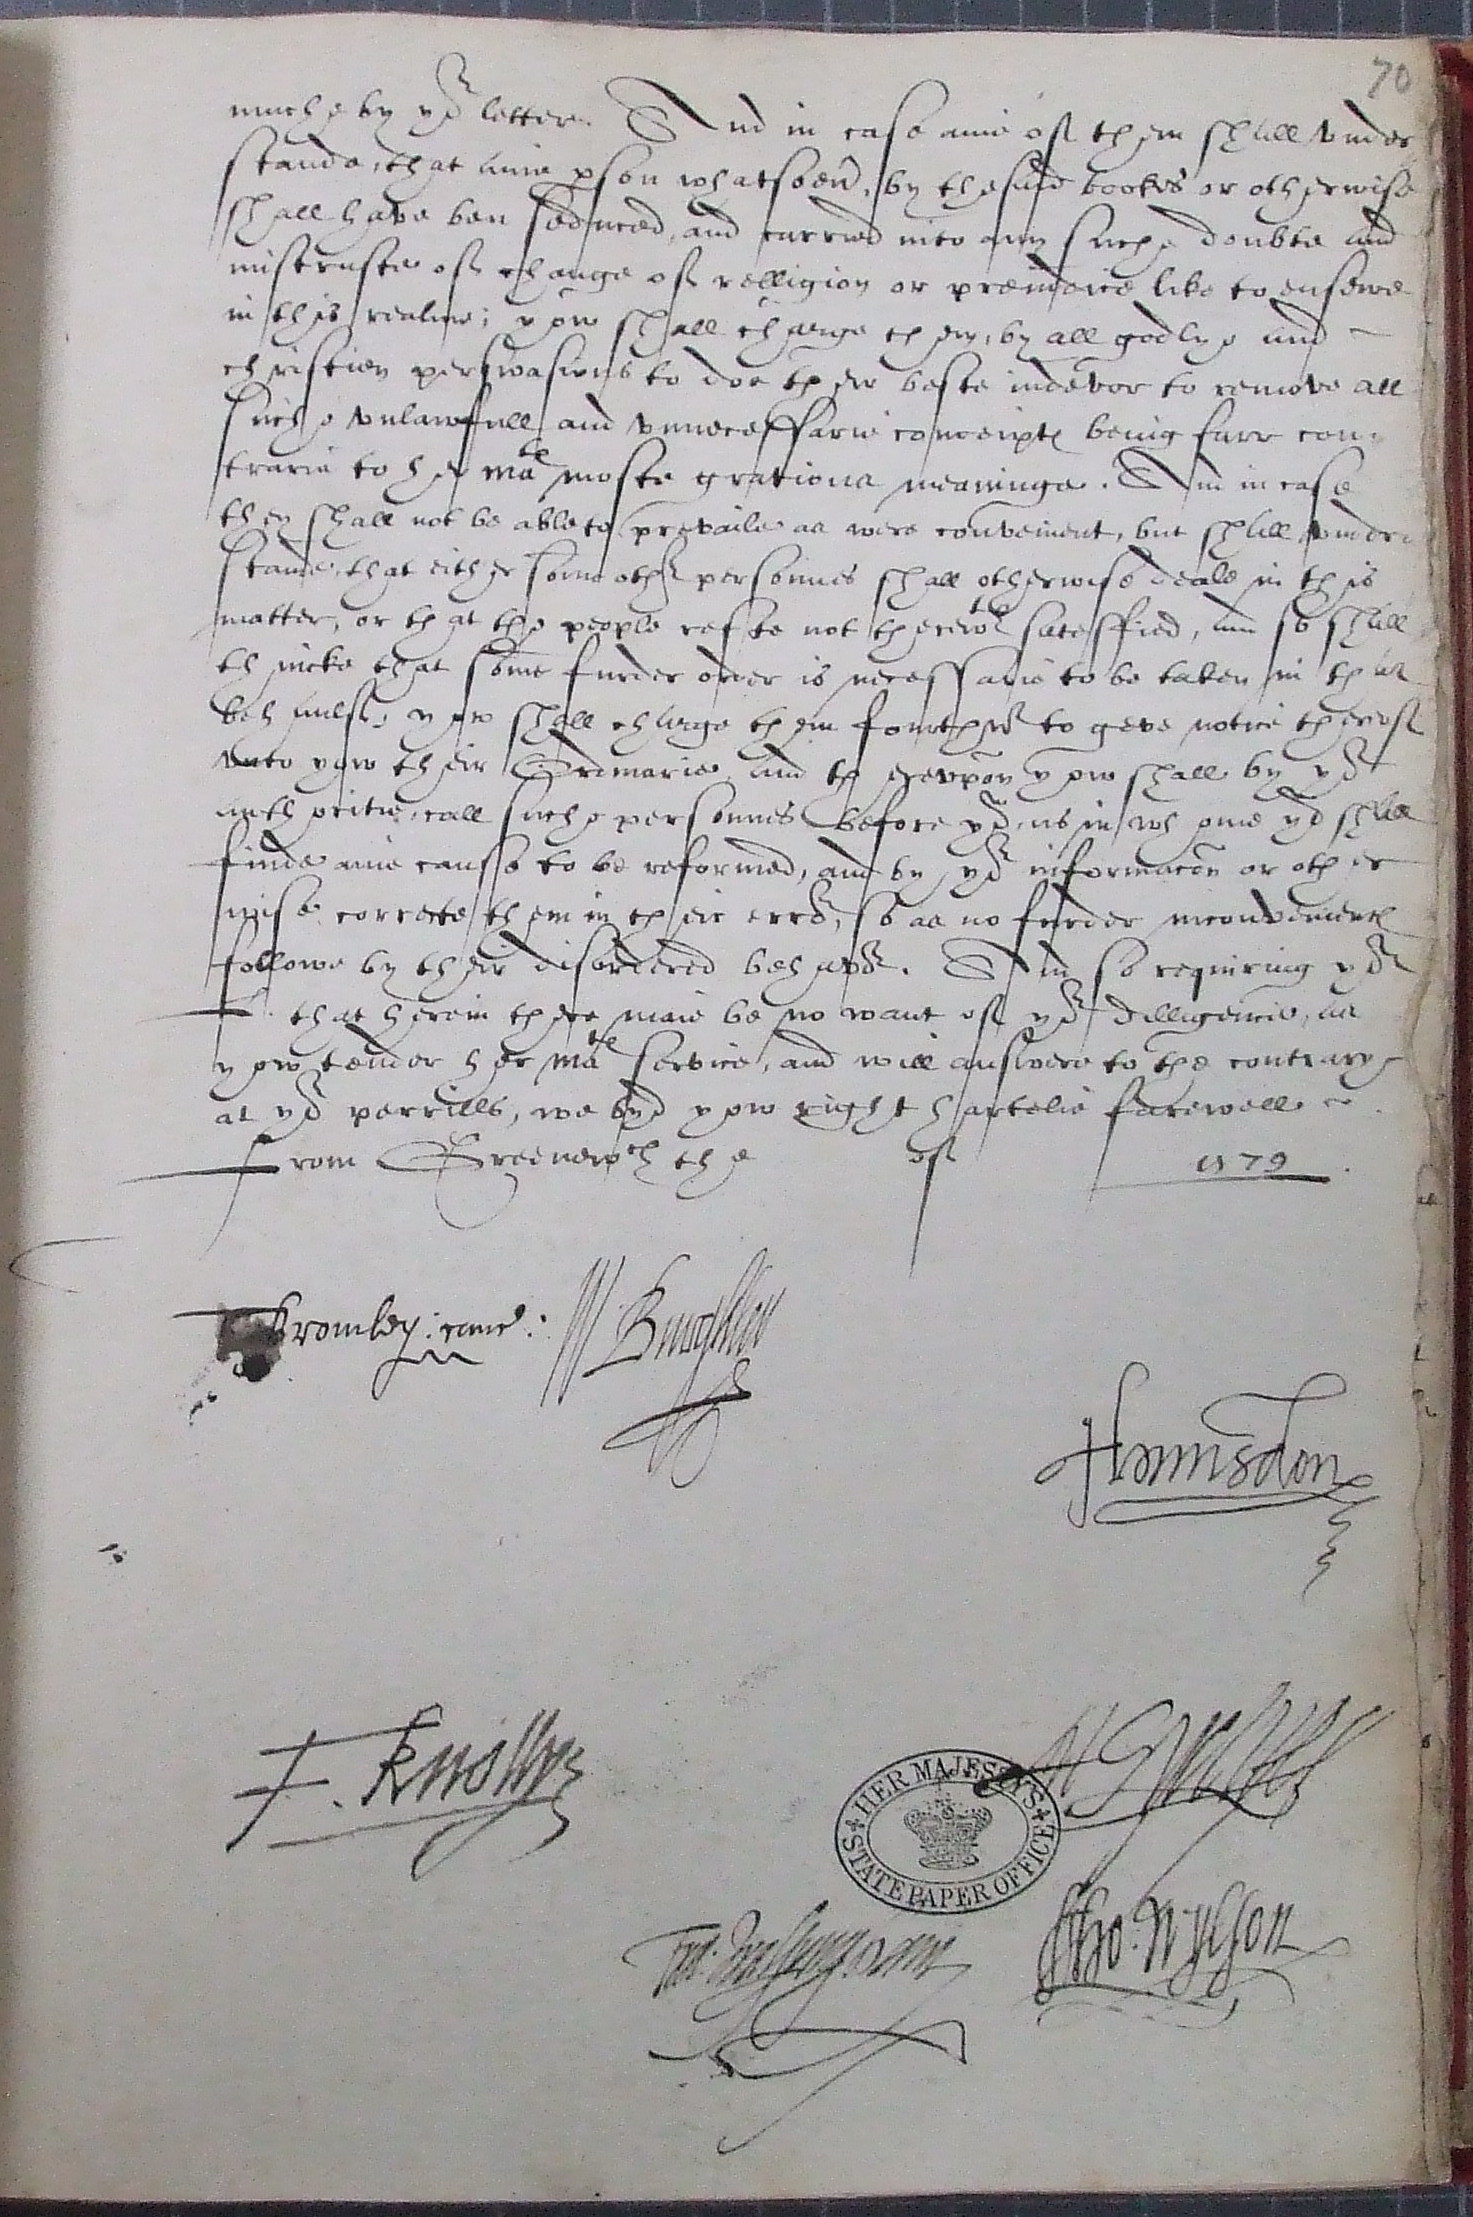 70
muche by yor letter. And in case anie of them shall vnder
stande, that anie pson whatsoeũ, by the said bookes or otherwise
shall have ben seduced, and carried into any suche doubte and
mistruste of change of relligion or preiudice like to ensewe
in this realme; yow shall charge them, by all godlye and
christien perswasions to doe their beste indevor to remove all
suche vnlawfull and vnnecessarie conceipts being farr con-
trarie to her Matie moste gratious meaninge. And in case
they shall not be able to prevaile as were convenient, but shall vnder
stande, that either some other personnes shall otherwise deale in this
matter, or that the people reste not therewth satesffied, and so shall
thincke that some furder order is necessarie to be taken in that
behaulf; yow shall charge them fourthwth to geve notice therof
vnto yow their Ordinarie, and therevpon yow shall by yor
authoritie, call suche personnes before yow, as in whome yow shall
finde anie cause to be reformed, and by yor informacõn or other
wise correcte them in their error, so as no furder inconvenients
followe by their disordered behavor. And so requiring yor
L. that herein there maie be no want of yor dilligencie, as
yow tender her Matie service, and will answere to the contrary
at yor perrills, we byd yow right hartelie farewell
From Grenewch the of 1579.
T Bromley: canc:
W Burghley
Hunsdon
F. Knollys
HER MAJESTY'S STATE PAPER OFFICE
Fra: Walsyngham
Tho: Wylson